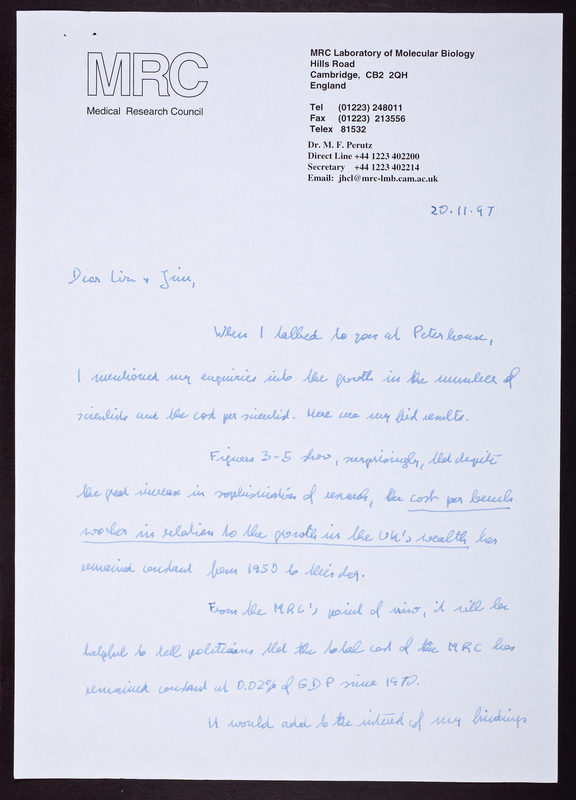 MRC
Medical Research Council
MRC Laboratory of Molecular Biology
Hills Road
Cambridge, CB2 2QH
England
Tel (01223) 248011
Fax (01223) 213556
Telex 81532
Dr. M. F. Perutz
Direct Line +44 1223 402200
Secretary +44 1223 402214
Email: jhcl@mrc-lmb.cam.ac.uk
20.11.97
Dear Liz + Jim,
When I talked to you at Peterhouse,
I mentioned my enquiries into the growth in the number of
scientists and the cost per scientist. Here are my first results.
Figures 3-5 show, surprisingly, that despite
the great increase in sophistication of research, the cost per bench
worker in relation to the growth in the UK's wealth has
remained constant from 1950 to this day.
From the MRC's point of view, it will be
helpful to tell politicians that the total cost of the MRC has
remained constant at 0.02% of GDP since 1970.
It would add to the interest of my findings